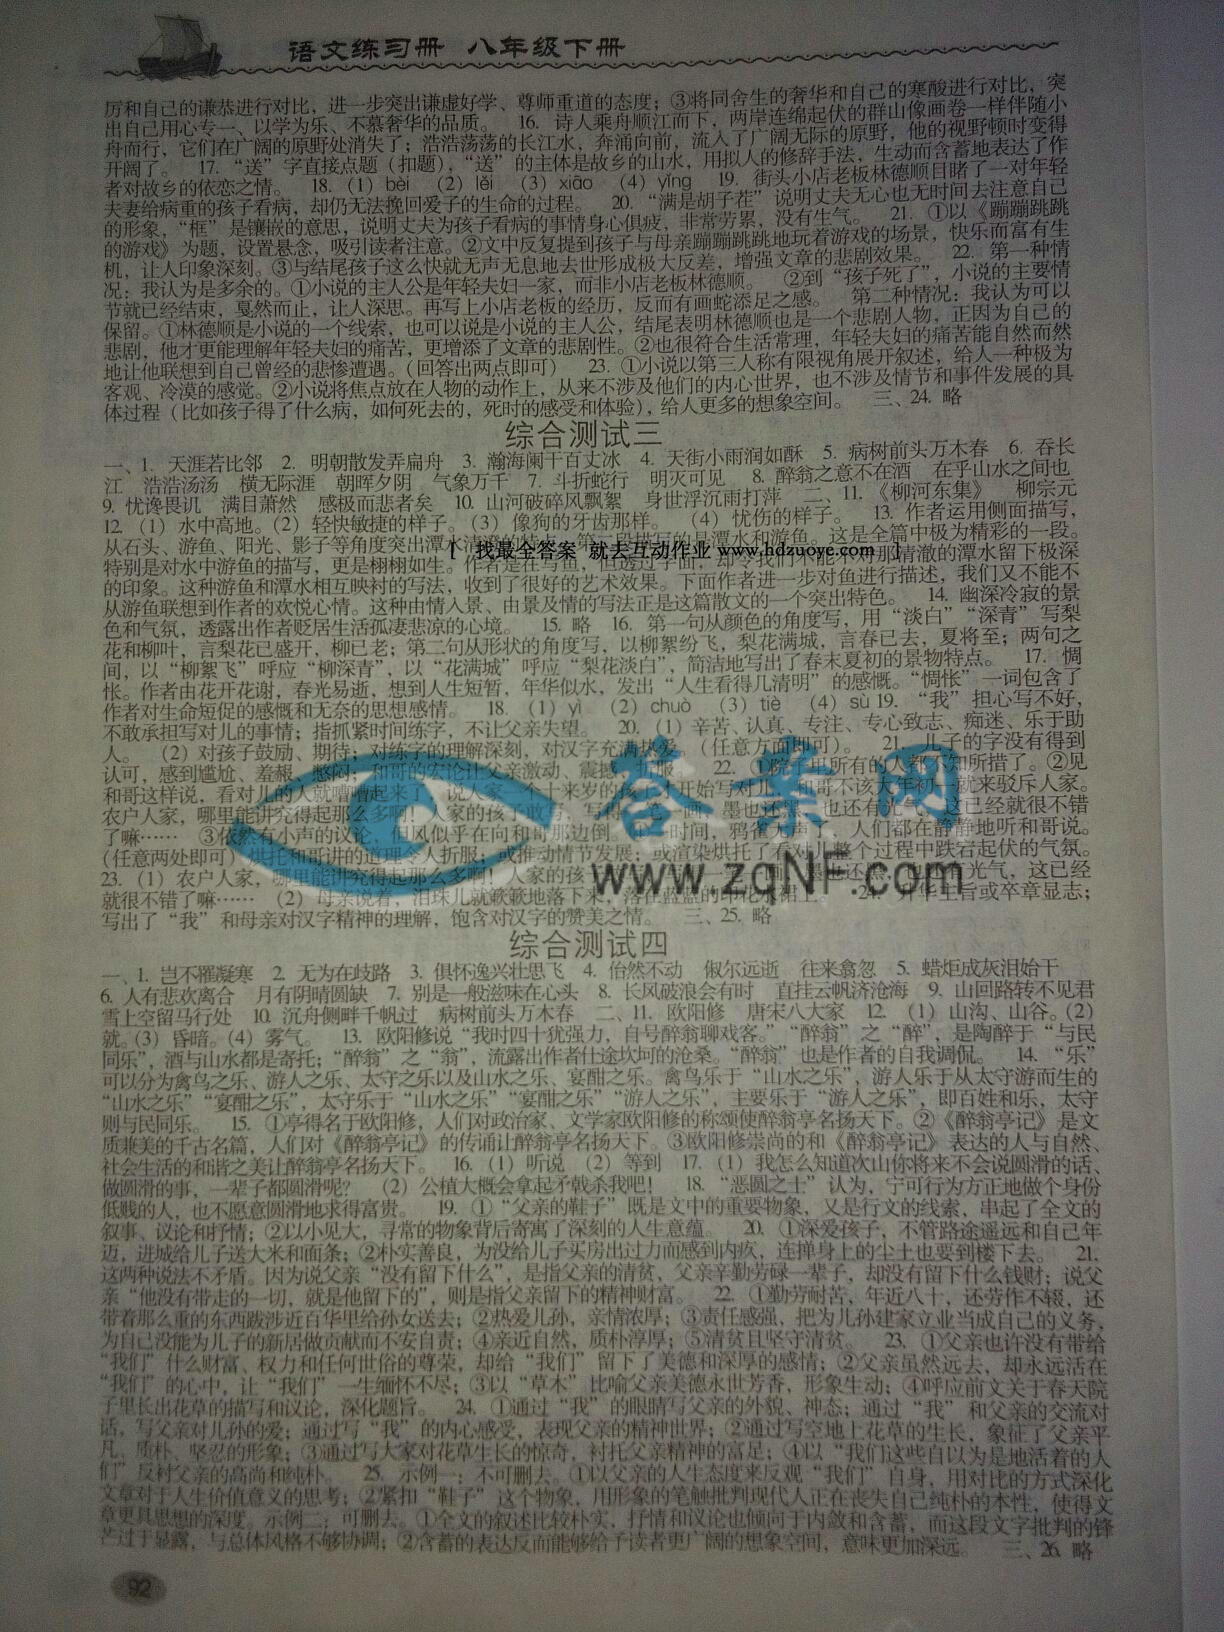 语文练习册 八年级下册
厉和自己的谦恭进行对比，进一步突出谦虚好学、尊师重道的态度；③将同舍生的奢华和自己的寒酸进行对比，突
出自己用心专一、以学为乐、不慕奢华的品质。 16. 诗人乘舟顺江而下，两岸连绵起伏的群山像画卷一样伴随小
舟而行，它们在广阔的原野处消失了；浩浩荡荡的长江水，奔涌向前，流入了广阔无际的原野，他的视野顿时变得
开阔了。 17. “送”字直接点题（扣题），“送”的主体是故乡的山水，用拟人的修辞手法，生动而含蓄地表达了作
者对故乡的依恋之情。 18.（1）bèi （2）lěi （3）xiāo （4）yīng 19. 街头小店老板林德顺目睹了一对年轻
夫妻给病重的孩子看病，却仍无法挽回爱子的生命的过程。 20. “满是胡子茬”说明丈夫无心也无时间去注意自己
的形象，“框”是镶嵌的意思，说明丈夫为孩子看病的事情身心俱疲，非常劳累，没有生气。 21. ①以《蹦蹦跳跳
的游戏》为题，设置悬念，吸引读者注意。②文中反复提到孩子与母亲蹦蹦跳跳地玩着游戏的场景，快乐而富有生
机，让人印象深刻。③与结尾孩子这么快就无声无息地去世形成极大反差，增强文章的悲剧效果。 22. 第一种情
况：我认为是多余的。①小说的主人公是年轻夫妇一家，而非小店老板林德顺。 ②到“孩子死了”，小说的主要情
节就已经结束，戛然而止，让人深思。再写上小店老板的经历，反而有画蛇添足之感。 第二种情况：我认为可以
保留。①林德顺是小说的一个线索，也可以说是小说的主人公，结尾表明林德顺也是一个悲剧人物，正因为自己的
悲剧，他才更能理解年轻夫妇的痛苦，更增添了文章的悲剧性。②也很符合生活常理，年轻夫妇的痛苦能自然而然
地让他联想到自己曾经的悲惨遭遇。（回答出两点即可） 23. ①小说以第三人称有限视角展开叙述，给人一种极为
客观、冷漠的感觉。②小说将焦点放在人物的动作上，从来不涉及他们的内心世界，也不涉及情节和事件发展的具
体过程（比如孩子得了什么病，如何死去的，死时的感受和体验），给人更多的想象空间。 三、24. 略
综合测试三
一、1. 天涯若比邻 2. 明朝散发弄扁舟 3. 瀚海阑干百丈冰 4. 天街小雨润如酥 5. 病树前头万木春 6. 吞长
江 浩浩汤汤 横无际涯 朝晖夕阴 气象万千 7. 斗折蛇行 明灭可见 8. 醉翁之意不在酒 在乎山水之间也
9. 忧谗畏讥 满目萧然 感极而悲者矣 10. 山河破碎风飘絮 身世浮沉雨打萍 二、11. 《柳河东集》 柳宗元
12.（1）水中高地。（2）轻快敏捷的样子。（3）像狗的牙齿那样。 （4）忧伤的样子。 13. 作者运用侧面描写，
从石头、游鱼、阳光、影子等角度突出潭水清澄的特点。第二段描写的是潭水和游鱼。这是全篇中极为精彩的一段。
【 找最全答案 就去互动作业 www.hdzuoye.com 】
特别是对水中游鱼的描写，更是栩栩如生。作者是在写鱼，但透过字面，却令我们不能不对那清澈的潭水留下极深
的印象。这种游鱼和潭水相互映衬的写法，收到了很好的艺术效果。下面作者进一步对鱼进行描述，我们又不能不
从游鱼联想到作者的欢悦心情。这种由情入景、由景及情的写法正是这篇散文的一个突出特色。 14. 幽深冷寂的景
色和气氛，透露出作者贬居生活孤凄悲凉的心境。 15. 略 16. 第一句从颜色的角度写，用“淡白”“深青”写梨
花和柳叶，言梨花已盛开，柳已老；第二句从形状的角度写，以柳絮纷飞，梨花满城，言春已去，夏将至；两句之
间，以“柳絮飞”呼应“柳深青”，以“花满城”呼应“梨花淡白”，简洁地写出了春末夏初的景物特点。 17. 惆
怅。作者由花开花谢，春光易逝，想到人生短暂，年华似水，发出“人生看得几清明”的感慨。“惆怅”一词包含了
作者对生命短促的感慨和无奈的思想感情。 18.（1）yì （2）chuò （3）tiè （4）sù 19. “我”担心写不好，
不敢承担写对儿的事情；指抓紧时间练字，不让父亲失望。 20.（1）辛苦、认真、专注、专心致志、痴迷、乐于助
人。 （2）对孩子鼓励、期待；对练字的理解深刻，对汉字充满热爱。（任意方面即可）。 21. 儿子的字没有得到
认可，感到尴尬、羞赧、憋闷；和哥的宏论让父亲激动、震撼、折服。 22. ①院子里所有的人都不知所措了。②见
和哥这样说，看对儿的人就嘈嘈起来了，说人家一个十来岁的孩子才开始写对儿，和哥不该大年初一就来驳斥人家。
农户人家，哪里能讲究得起那么多啊！人家的孩子敢写，写得一笔一画，墨也还黑，也还有光气，这已经就很不错
了嘛…… ③依然有小声的议论，但风似乎在向和哥那边倒。④一时间，鸦雀无声了，人们都在静静地听和哥说。
（任意两处即可）烘托和哥讲的道理令人折服；或推动情节发展；或渲染烘托了看对儿整个过程中跌宕起伏的气氛。
23.（1）农户人家，哪里能讲究得起那么多啊！人家的孩子光气，这已经
就很不错了嘛…… （2）母亲说着，泪珠儿就簌簌地落下来，落在蓝蓝的印花水裙上。 24. 升华主旨或卒章显志；
写出了“我”和母亲对汉字精神的理解，饱含对汉字的赞美之情。 三、25. 略
答案网
www.zqNF.com
综合测试四
一、1. 岂不罹凝寒 2. 无为在歧路 3. 俱怀逸兴壮思飞 4. 佁然不动 俶尔远逝 往来翕忽 5. 蜡炬成灰泪始干
6. 人有悲欢离合 月有阴晴圆缺 7. 别是一般滋味在心头 8. 长风破浪会有时 直挂云帆济沧海 9. 山回路转不见君
雪上空留马行处 10. 沉舟侧畔千帆过 病树前头万木春 二、11. 欧阳修 唐宋八大家 12.（1）山沟、山谷。（2）
就。（3）昏暗。（4）雾气。 13. 欧阳修说“我时四十犹强力，自号醉翁聊戏客。”“醉翁”之“醉”，是陶醉于“与民
同乐”，酒与山水都是寄托；“醉翁”之“翁”，流露出作者仕途坎坷的沧桑。“醉翁”也是作者的自我调侃。 14. “乐”
可以分为禽鸟之乐、游人之乐、太守之乐以及山水之乐、宴酣之乐。禽鸟乐于“山水之乐”，游人乐于从太守游而生的
“山水之乐”“宴酣之乐”，太守乐于“山水之乐”“宴酣之乐”“游人之乐”，主要乐于“游人之乐”，即百姓和乐，太守
则与民同乐。 15. ①亭得名于欧阳修，人们对政治家、文学家欧阳修的称颂使醉翁亭名扬天下。②《醉翁亭记》是文
质兼美的千古名篇，人们对《醉翁亭记》的传诵让醉翁亭名扬天下。③欧阳修崇尚的和《醉翁亭记》表达的人与自然、
社会生活的和谐之美让醉翁亭名扬天下。 16.（1）听说 （2）等到 17.（1）我怎么知道次山你将来不会说圆滑的话、
做圆滑的事，一辈子都圆滑呢？ （2）公植大概会拿起矛戟杀我吧！ 18. “恶圆之士”认为，宁可行为方正地做个身份
低贱的人，也不愿意圆滑地求得富贵。 19. ①“父亲的鞋子”既是文中的重要物象，又是行文的线索，串起了全文的
叙事、议论和抒情；②以小见大，寻常的物象背后寄寓了深刻的人生意蕴。 20. ①深爱孩子，不管路途遥远和自己年
迈，进城给儿子送大米和面条；②朴实善良，为没给儿子买房出过力而感到内疚，连掸身上的尘土也要到楼下去。 21.
这两种说法不矛盾。因为说父亲“没有留下什么”，是指父亲的清贫，父亲辛勤劳碌一辈子，却没有留下什么钱财；说父
亲“他没有带走的一切，就是他留下的”，则是指父亲留下的精神财富。 22. ①勤劳耐苦，年近八十，还劳作不辍，还
带着那么重的东西跋涉近百华里给孙女送去；②热爱儿孙，亲情浓厚；③责任感强，把为儿孙建家立业当成自己的义务，
为自己没能为儿子的新居做贡献而不安自责；④亲近自然，质朴淳厚；⑤清贫且坚守清贫。 23. ①父亲也许没有带给
“我们”什么财富、权力和任何世俗的尊荣，却给“我们”留下了美德和深厚的感情；②父亲虽然远去，却永远活在
“我们”的心中，让“我们”一生缅怀不尽；③以“草木”比喻父亲美德永世芳香，形象生动；④呼应前文关于春天院
子里长出花草的描写和议论，深化题旨。 24. ①通过“我”的眼睛写父亲的外貌、神态；通过“我”和父亲的交流对
话，写父亲对儿孙的爱；通过写“我”的内心感受，表现父亲的精神世界；②通过写空地上花草的生长，象征了父亲平
凡、质朴、坚忍的形象；③通过写大家对花草生长的惊奇，衬托父亲精神的富足；④以“我们这些自以为是地活着的人
们”反衬父亲的高尚和纯朴。 25. 示例一：不可删去。①以父亲的人生态度来反观“我们”自身，用对比的方式深化
文章对于人生价值意义的思考；②紧扣“鞋子”这个物象，用形象的笔触批判现代人正在丧失自己纯朴的本性，使得文
章更具思想的深度。示例二：可删去。①全文的叙述比较朴实，抒情和议论也倾向于内敛和含蓄，而这段文字批判的锋
芒过于显露，与总体风格不够协调；②含蓄的表达反而能够给予读者更广阔的想象空间，意味更加深远。 三、26. 略
92